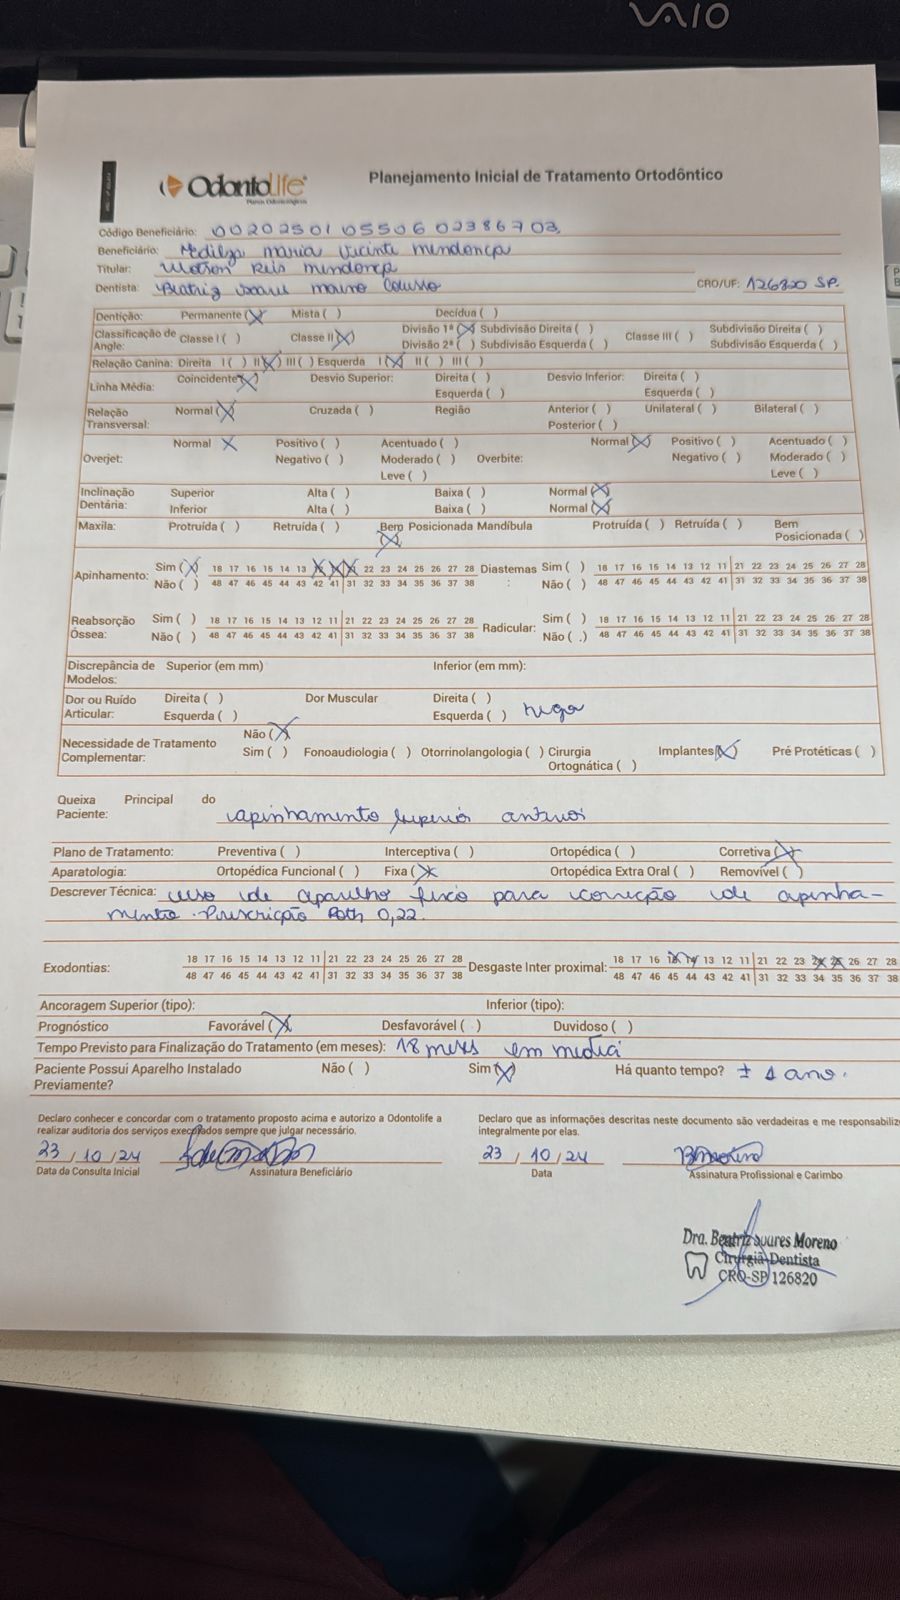 VAIO
OdontoLife
Planos Odontológicos
Planejamento Inicial de Tratamento Ortodôntico
Código Beneficiário: 002025010550602386703
Beneficiário: maria Vicente mendonça
Titular: Reis mendonça
Dentista: Beatriz CRO/UF: 126820 SP.
Dentição: Permanente (X) Mista ( ) Decídua ( )
Classificação de Angle: Classe I ( ) Classe II (X) Divisão 1ª (X) Subdivisão Direita ( ) Classe III ( ) Subdivisão Direita ( )
Divisão 2ª ( ) Subdivisão Esquerda ( ) Subdivisão Esquerda ( )
Relação Canina: Direita I ( ) II (X) III ( ) Esquerda I (X) II ( ) III ( )
Linha Média: Coincidente (X) Desvio Superior: Direita ( ) Desvio Inferior: Direita ( )
Esquerda ( ) Esquerda ( )
Relação Transversal: Normal (X) Cruzada ( ) Região Anterior ( ) Unilateral ( ) Bilateral ( )
Posterior ( )
Overjet: Normal X Positivo ( ) Acentuado ( ) Overbite: Normal (X) Positivo ( ) Acentuado ( )
Negativo ( ) Moderado ( ) Negativo ( ) Moderado ( )
Leve ( ) Leve ( )
Inclinação Dentária: Superior Alta ( ) Baixa ( ) Normal (X)
Inferior Alta ( ) Baixa ( ) Normal (X)
Maxila: Protruída ( ) Retruída ( ) Bem Posicionada (X) Mandíbula Protruída ( ) Retruída ( ) Bem Posicionada ( )
Apinhamento: Sim (X) 18 17 16 15 14 13 X X X 22 23 24 25 26 27 28 Diastemas: Sim ( ) 18 17 16 15 14 13 12 11 21 22 23 24 25 26 27 28
Não ( ) 48 47 46 45 44 43 42 41 31 32 33 34 35 36 37 38 Não ( ) 48 47 46 45 44 43 42 41 31 32 33 34 35 36 37 38
Reabsorção Óssea: Sim ( ) 18 17 16 15 14 13 12 11 21 22 23 24 25 26 27 28 Radicular: Sim ( ) 18 17 16 15 14 13 12 11 21 22 23 24 25 26 27 28
Não ( ) 48 47 46 45 44 43 42 41 31 32 33 34 35 36 37 38 Não ( .) 48 47 46 45 44 43 42 41 31 32 33 34 35 36 37 38
Discrepância de Modelos: Superior (em mm) Inferior (em mm):
Dor ou Ruído Articular: Direita ( ) Dor Muscular Direita ( )
Esquerda ( ) Esquerda ( ) nega
Necessidade de Tratamento Complementar: Não (X)
Sim ( ) Fonoaudiologia ( ) Otorrinolangologia ( ) Cirurgia Ortognática ( ) Implantes (X) Pré Protéticas ( )
Queixa Principal do Paciente: apinhamento superior anterior
Plano de Tratamento: Preventiva ( ) Interceptiva ( ) Ortopédica ( ) Corretiva (X)
Aparatologia: Ortopédica Funcional ( ) Fixa (X) Ortopédica Extra Oral ( ) Removível ( )
Descrever Técnica: uso de aparelho fixo para correção de apinha-
mento. Prescrição Roth 0,22.
Exodontias: 18 17 16 15 14 13 12 11 21 22 23 24 25 26 27 28 Desgaste Inter proximal: 18 17 16 15 14 13 12 11 21 22 23 24 25 26 27 28
48 47 46 45 44 43 42 41 31 32 33 34 35 36 37 38 48 47 46 45 44 43 42 41 31 32 33 34 35 36 37 38
Ancoragem Superior (tipo): Inferior (tipo):
Prognóstico Favorável (X) Desfavorável ( ) Duvidoso ( )
Tempo Previsto para Finalização do Tratamento (em meses): 18 meses em media
Paciente Possui Aparelho Instalado Previamente? Não ( ) Sim (X) Há quanto tempo? ± 1 ano.
Declaro conhecer e concordar com o tratamento proposto acima e autorizo a Odontolife a
realizar auditoria dos serviços executados sempre que julgar necessário.
Declaro que as informações descritas neste documento são verdadeiras e me responsabilizo
integralmente por elas.
23 / 10 / 24
23 / 10 / 24
Data da Consulta Inicial Assinatura Beneficiário Data Assinatura Profissional e Carimbo
Dra. Beatriz Soares Moreno
Cirurgiã-Dentista
CRO-SP 126820